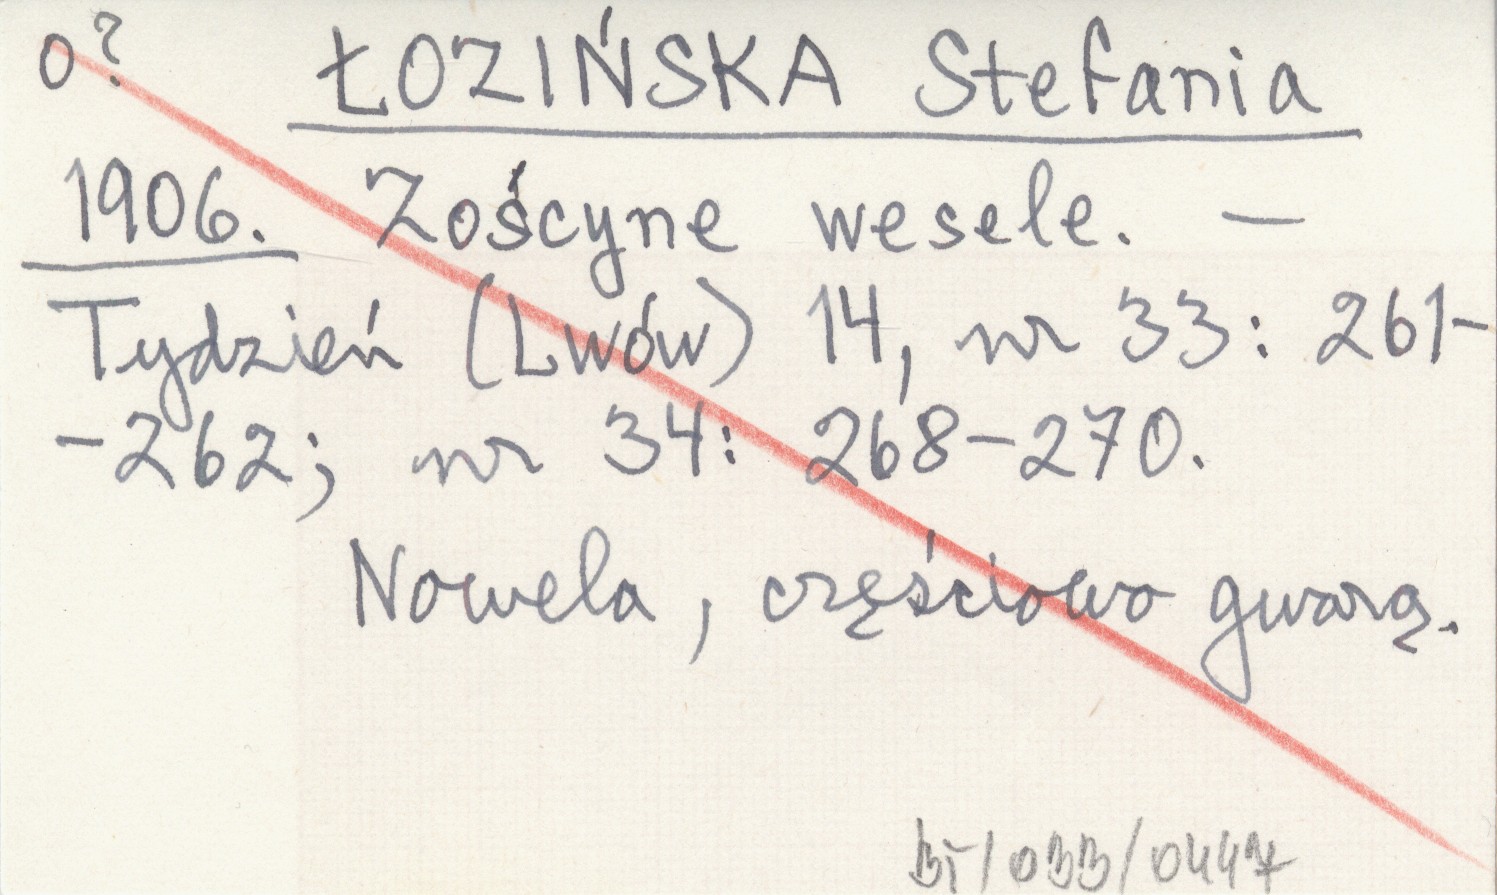 o? ŁOZIŃSKA Stefania
1906. Zoścyne wesele. —
Tydzień (Lwów) 14, nr 33: 261-
-262; nr 34: 268-270.
Nowela, częściowo gwarą.
/033/0447